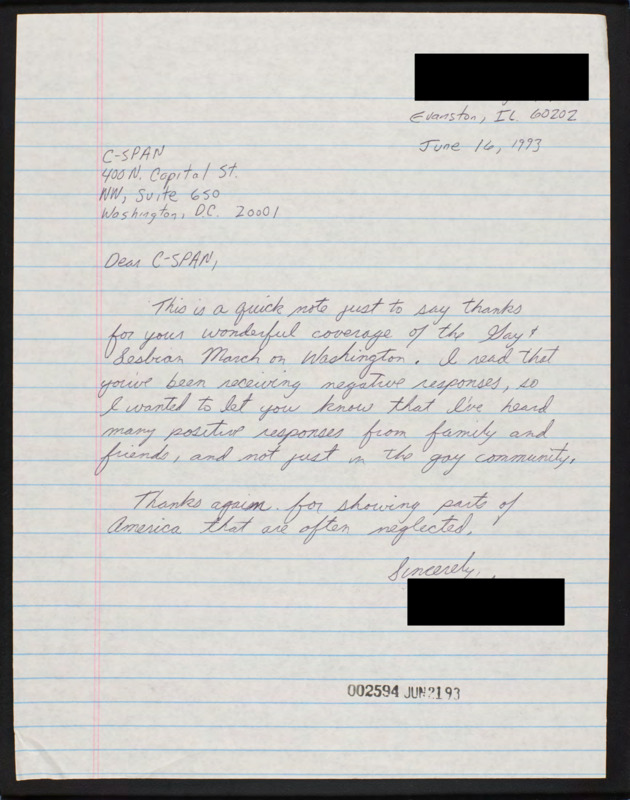 Evanston, IL 60202
June 16, 1993
C-SPAN
400 N. Capital St.
NW, Suite 650
Washington, D.C. 20001
Dear C-SPAN,
This is a quick note just to say thanks
for your wonderful coverage of the Gay &
Lesbian March on Washington. I read that
you've been receiving negative responses, so
I wanted to let you know that I've heard
many positive responses from family and
friends, and not just in the gay community.
Thanks again for showing parts of
America that are often neglected.
Sincerely,
002594 JUN 21 93